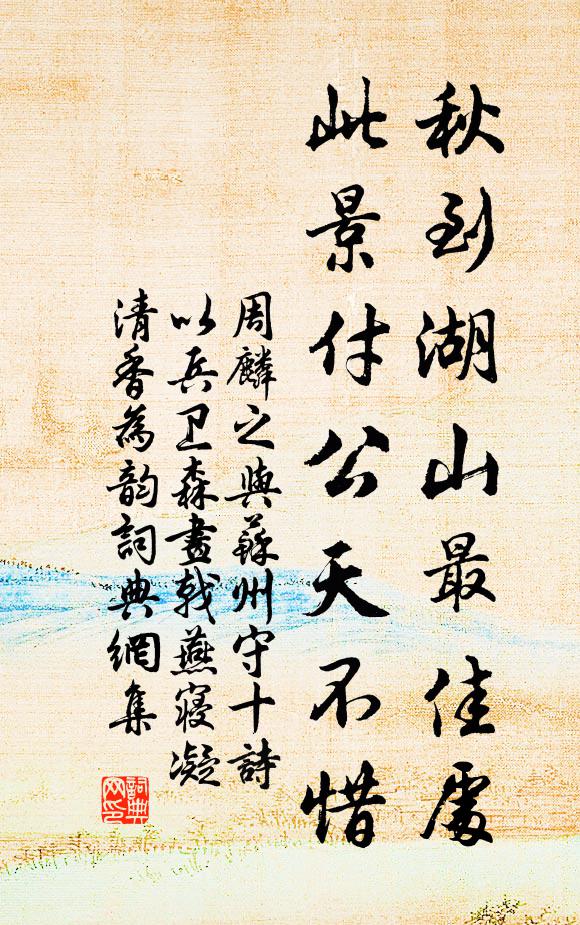 秋到湖山最佳處
此景付公天不惜
周麟之與蘇州守十詩
以兵卫森畫戟燕寢凝
清香為韵詞典網集
詞典网印